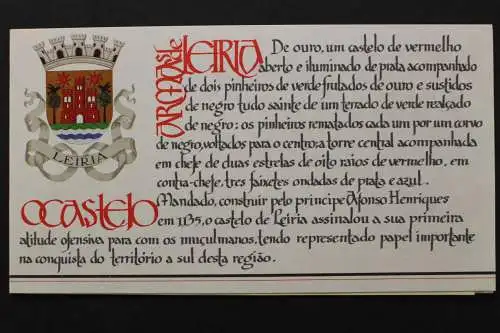 LEIRIA
Armas de LEIRIA De ouro, um castelo de vermelho
aberto e iluminado de prata acompanhado
de dois pinheiros de verde frutados de ouro e sustidos
de negro tudo sainte de um terrado de verde realçado
de negro: os pinheiros rematados cada um por um corvo
de negro, voltados para o centro; a torre central acompanhada
em chefe de duas estrelas de oito raios de vermelho, em
contra-chefe, tres faixetes ondadas de prata e azul.
O Castelo Mandado, construir pelo principe Afonso Henriques
em 1135, o castelo de Leiria assinalou a sua primeira
atitude ofensiva para com os muçulmanos, tendo representado papel importante
na conquista do território a sul desta região.